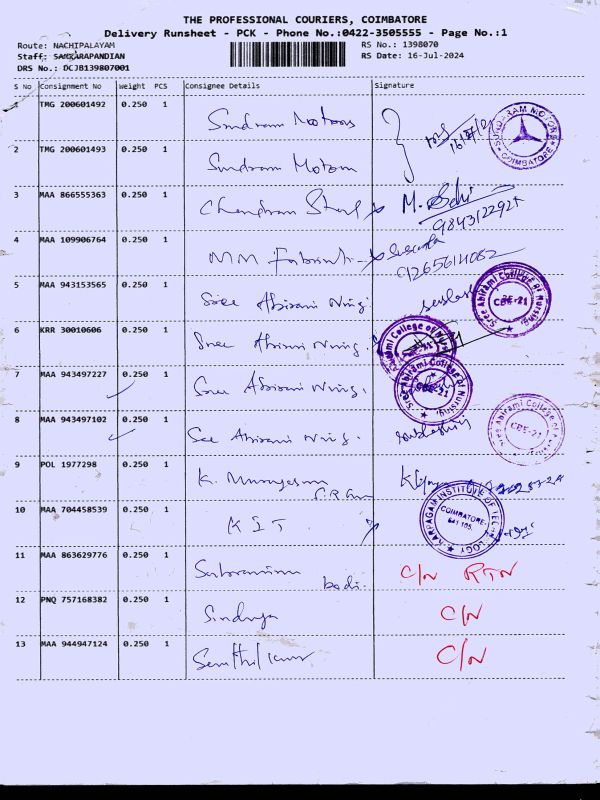 THE PROFESSIONAL COURIERS, COIMBATORE
Delivery Runsheet - PCK - Phone No.:0422-3505555 - Page No.:1
Route: NACHIPALAYAM
Staff: SANKARAPANDIAN
DRS No.: DCJB139807001
RS No.: 1398070
RS Date: 16-Jul-2024
S No Consignment No Weight PCS Consignee Details Signature
1 TMG 200601492 0.250 1 Sundram Motors
SUNDARAM MOTORS COIMBATORE
2 TMG 200601493 0.250 1 Sundram Motors
3 MAA 866555363 0.250 1 Chendram Steel
4 MAA 109906764 0.250 1 MM Fabrints
5 MAA 943153565 0.250 1 Sree Abirami Nring.
Sree Abirami College of Nursing, CBE-21
6 KRR 30010606 0.250 1 Sree Abirami Nring.
7 MAA 943497227 0.250 1 Sree Abirami Nring.
Sree Abirami College of Nursing, CBE-21
8 MAA 943497102 0.250 1 Sree Abirami Nring.
Sree Abirami College of CBE-21
9 POL 1977298 0.250 1 K. Murugesan
10 MAA 704458539 0.250 1 KIT.
KARPAGAM INSTITUTE OF TECHNOLOGY COIMBATORE- 641 105.
11 MAA 863629776 0.250 1 Subramani bodi. C/N RTN
12 PNQ 757168382 0.250 1 Sindhuja C/N
13 MAA 944947124 0.250 1 Senthilkumar C/N